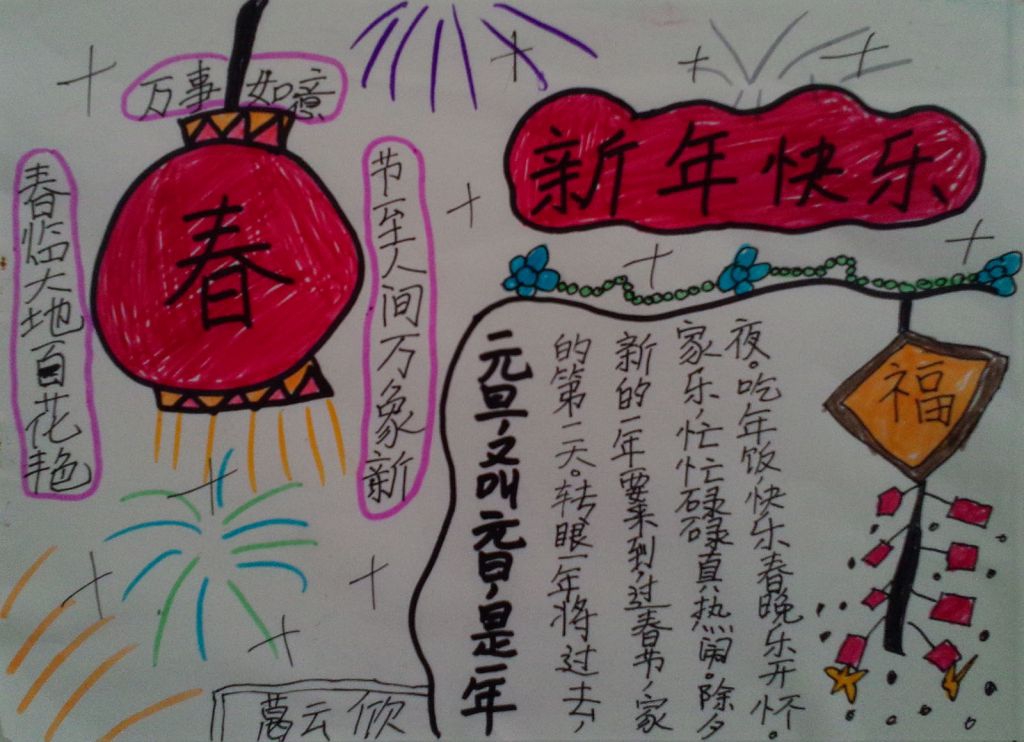 万事如意
春临大地百花艳
春
节至人间万象新
新年快乐
元旦,又叫元日,是一年
的第二天。转眼一年将过去,
新的一年要来到,过春节,家
家乐,忙忙碌碌真热闹。除夕
夜。吃年饭,快乐春晚乐开怀。
福
葛云欣